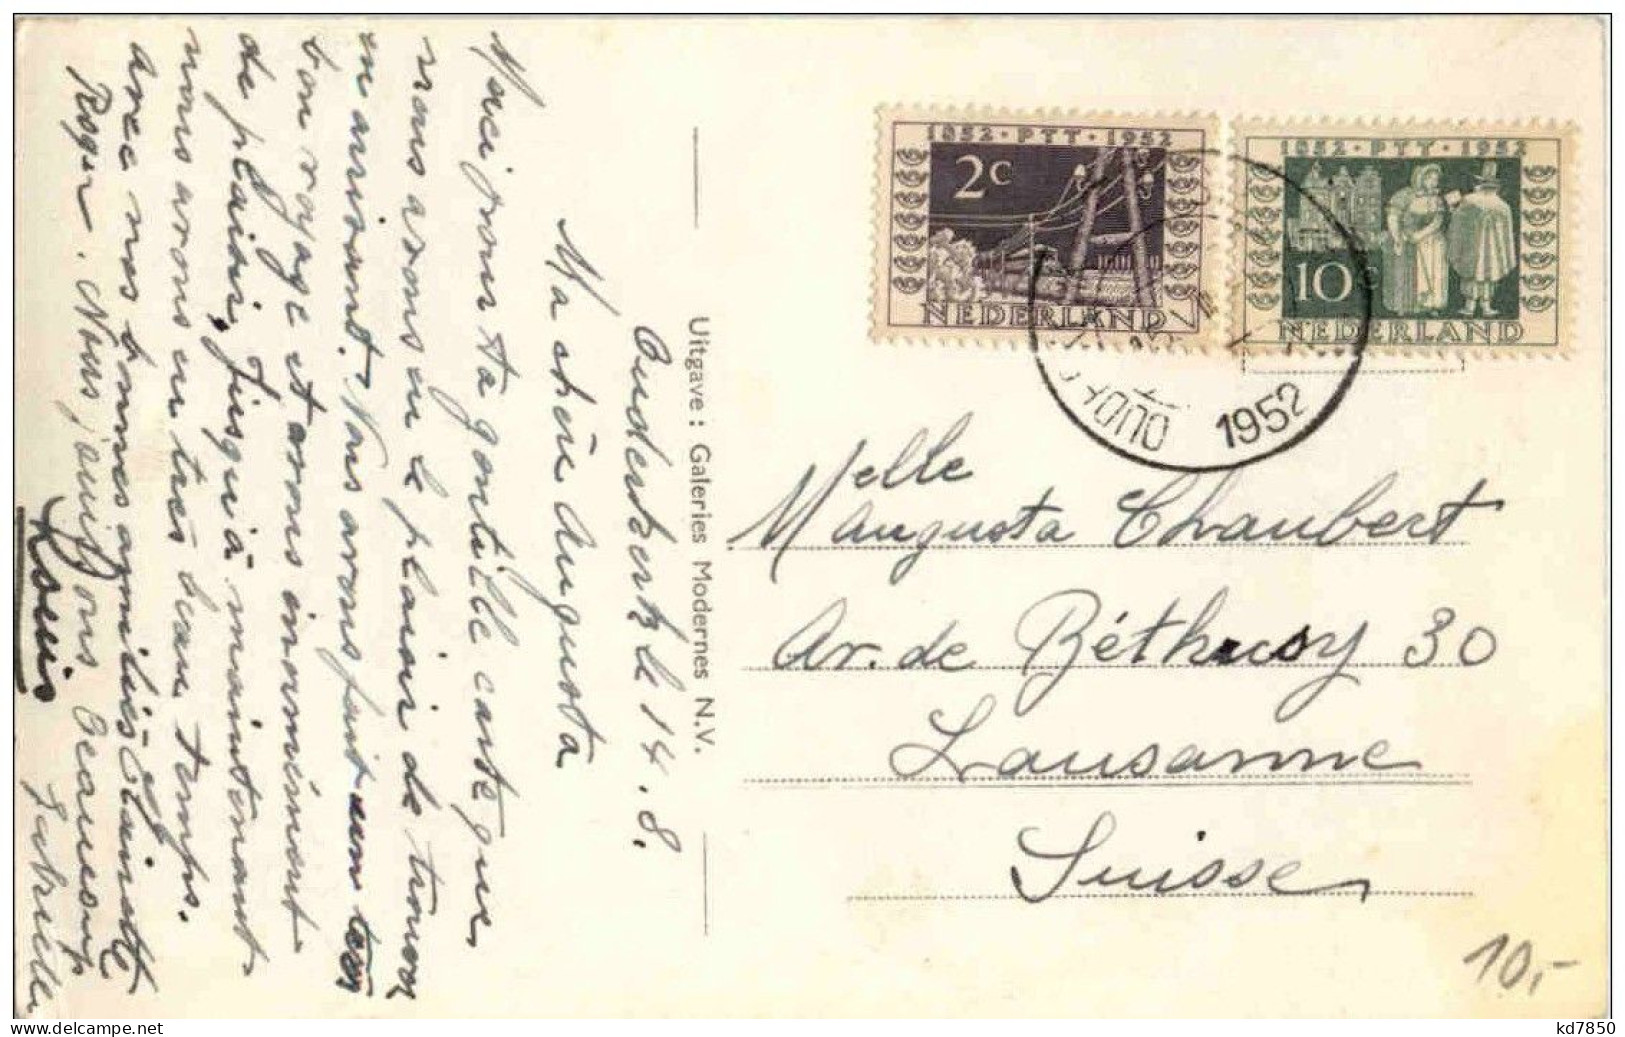 1852 · PTT · 1952
2c
NEDERLAND
1852 · PTT · 1952
10c
NEDERLAND
OUDERK
1952
Uitgave : Galeries Modernes N.V.
Ouderkerk le 14.8.
Ma chère Augusta
Merci pour ta gentille carte que
nous avons eu le plaisir de trouver
en arrivant. Nous avons fait un très
bon voyage et avons énormément
de plaisir. Jusqu'à maintenant
nous avons eu très beau temps.
avec nos bonnes amitiés
Roger. Nous jouissons beaucoup
Louis
Melle
Augusta Chaubert
Av. de Béthusy 30
Lausanne
Suisse
10,-
kd7850